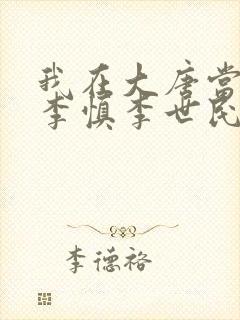 我在大唐当
李慎李世民
李德裕